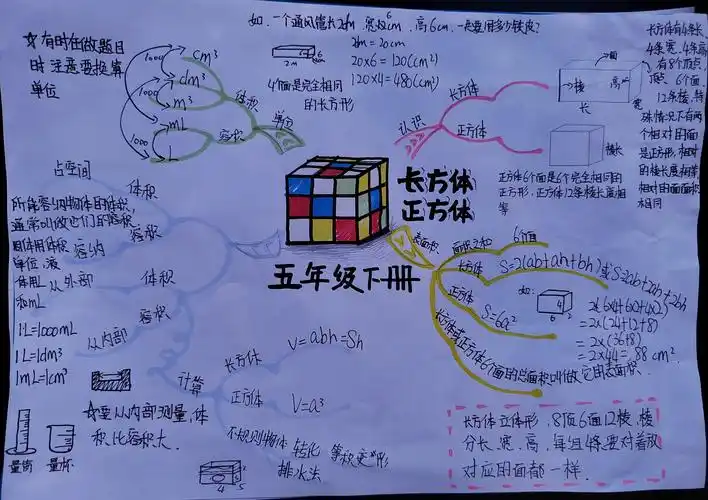 如:一个通风管长2dm,宽6cm,高6cm,一共要用多少铁皮?
2dm=20cm
20×6=120(cm²)
120×4=480(cm²)
4个面是完全相同
的长方形
2m
☆有时在做题目
时注意要换算
单位
1000
cm³
dm³
1000
m³
mL
1000
L
体积
容积
单位
认识
长方体
正方体
面
棱
高
长
宽
棱长
正方体6个面是6个完全相同的
正方形,正方体12条棱长度相
等
长方体有4条长,
4条宽,4条高
有8个顶点,
顶点 6个面
12条棱,特
殊情况下有两
个相对的面
是正方形,相对
的棱长度相等
相对的面面积
相同
长方体
正方体
五年级下册
占空间
体积
所能容纳物体的体积,
通常叫做它们的容积
容积
容纳
单位
从外部
体积
和mL
容积
从内部
1L=1000mL
1L=1dm³
1mL=1cm³
☆要从内部测量,体
积比容积大.
量筒
量杯
计算
长方体
V=abh=Sh
正方体
V=a³
不规则物体
转化
等积变形
排水法
表面积
面积之和
6个面
长方体
S=2(ab+ah+bh)或S=2ab+2ah+2bh
正方体
S=6a²
如:
4
6
2
2×(6×4+6×2+4×2)
=2×(24+12+8)
=2×(36+8)
=2×44=88cm².
长方体或正方体6个面的总面积叫做它的表面积.
长方体立体形,8顶6面12棱,棱
分长、宽、高,每组4条要对着放
对应的面都一样.